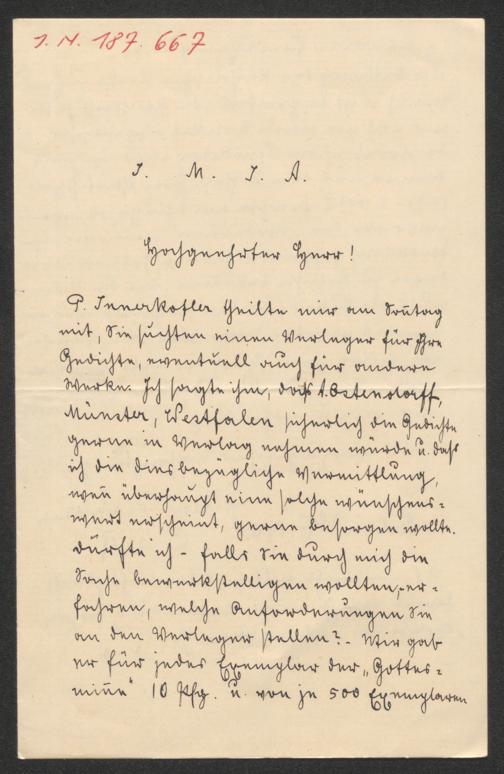 J. N. 187.667
J. M. J. A.
Hochgeehrter Herr!
P. Innerkofler theilte mir am Soñtag
mit, Sie suchten einen Verleger für Ihre
Gedichte, eventuell auch für andere
Werke. Ich sagte ihm, daß A. Ostendorff,
Münster, Westfalen sicherlich die Gedichte
gerne in Verlag nehmen würde u. daß
ich die diesbezügliche Vermittlung,
weñ überhaupt eine solche wünschens=
wert erscheint, gerne besorgen wollte.
Dürfte ich - falls Sie durch mich die
Sache bewerkstelligen wollten, - er=
fahren, welche Anforderungen Sie
an den Verleger stellen? - Mir gab
er für jedes Exemplar der „Gottes=
miñe" 10 Pfg. u. von je 500 Exemplaren